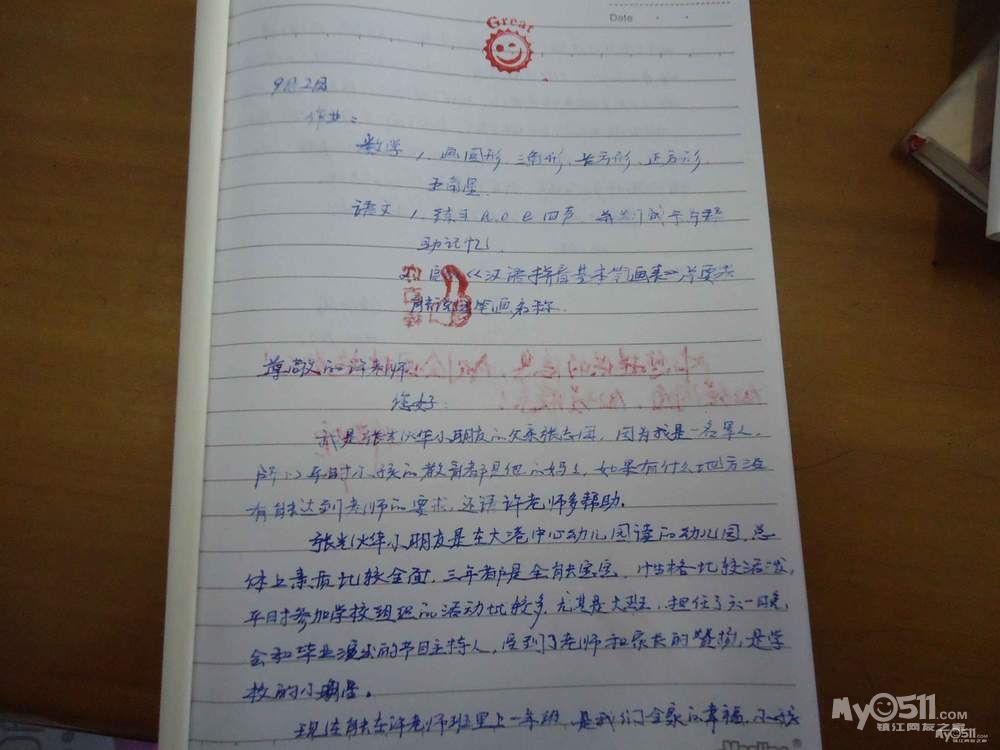 Date
Great
9月2日
作业：
数学 1. 画圆形、三角形、长方形、正方形、
五角星
语文 1. 练习 a.o.e 四声
助记忆
《汉语拼音基本笔画表》
笔画名称.
尊敬的许老师
您好：
我是张 华小朋友的父亲张志 ，因为我是一名军人，
所以平时小孩的教育都是他的妈妈，如果有什么地方没
有能达到老师的要求，还请许老师多帮助。
张 华小朋友是在大港中心幼儿园读的幼儿园，总
体上素质比较全面，三年都是全能宝宝，性格比较活泼，
平时参加学校组织的活动比较多，尤其是大班，担任了六一晚
会和毕业演出的节目主持人，受到了老师和家长的赞扬，是学
校的小明星。
现在能在许老师班里上一年级，是我们全家的幸福，小孩
My0511.com
镇江网友之家
My0511.com